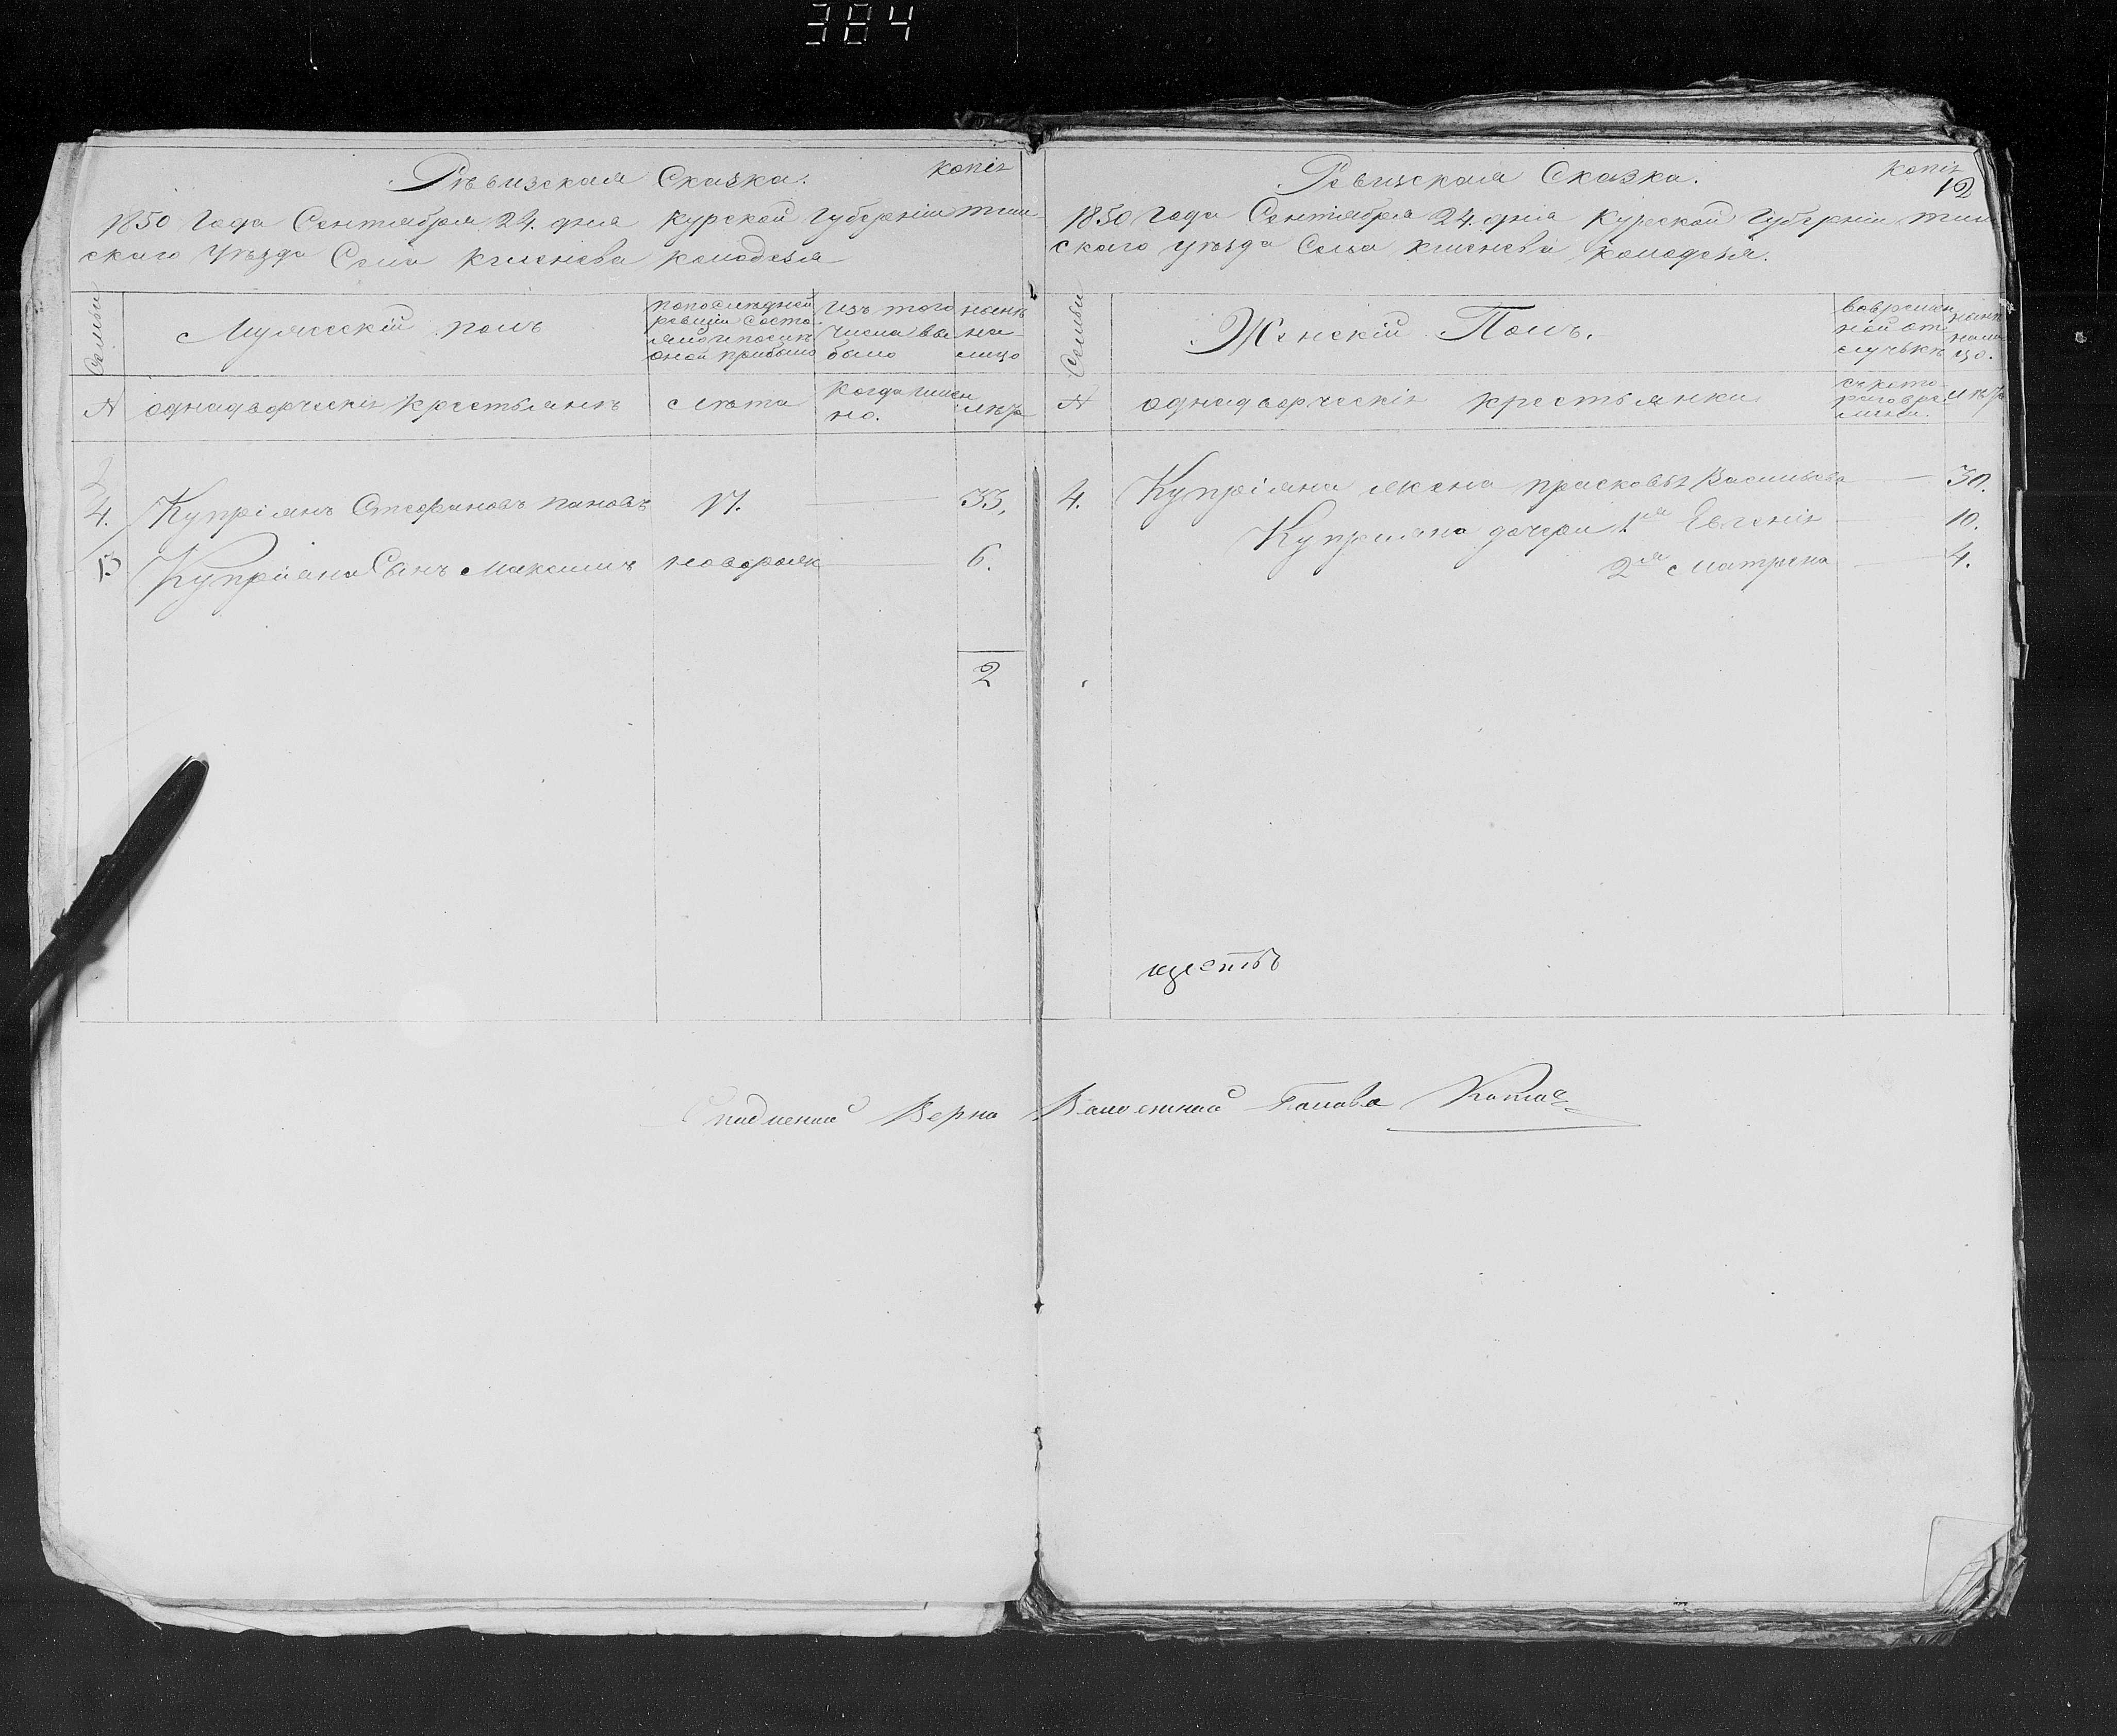 384
Ревизская Сказка. копiѣ
1850 Года Сентября 24. дня Курской Губернiи тим
скаго уѣзда Села кшенева колодезя
Семьи
Мужескiй полъ
попослѣдней ревизiи состо яло и послѣ оной прибыло
Изъ того числа вы было
нынѣ на лицо
№ однадворческiе крестьянѣ
лѣта
Когда имен но.
лѣта
4. Купрiянъ Стефановъ пановъ 17. 33.
Купрiяна Сынъ Максимъ новорож 6.
2
Ревизская Сказка. копiѣ
12
1850 Года Сентября 24. дня Курской Губернiи тим
скаго уѣзда Села кшенева колодезя.
Семьи
Женскiй Полъ.
вовремен ной от лучькѣ
нынѣ нали цо.
№ однадворческiе крестьянки
съ кото раго вре мени.
лѣта
4. Купрiяна жена прасковья Васильева 30.
Куприяна дочери 1я Евгенiя 10.
2я Матрена 4.
шесть
подленой Верно Волостной Голова